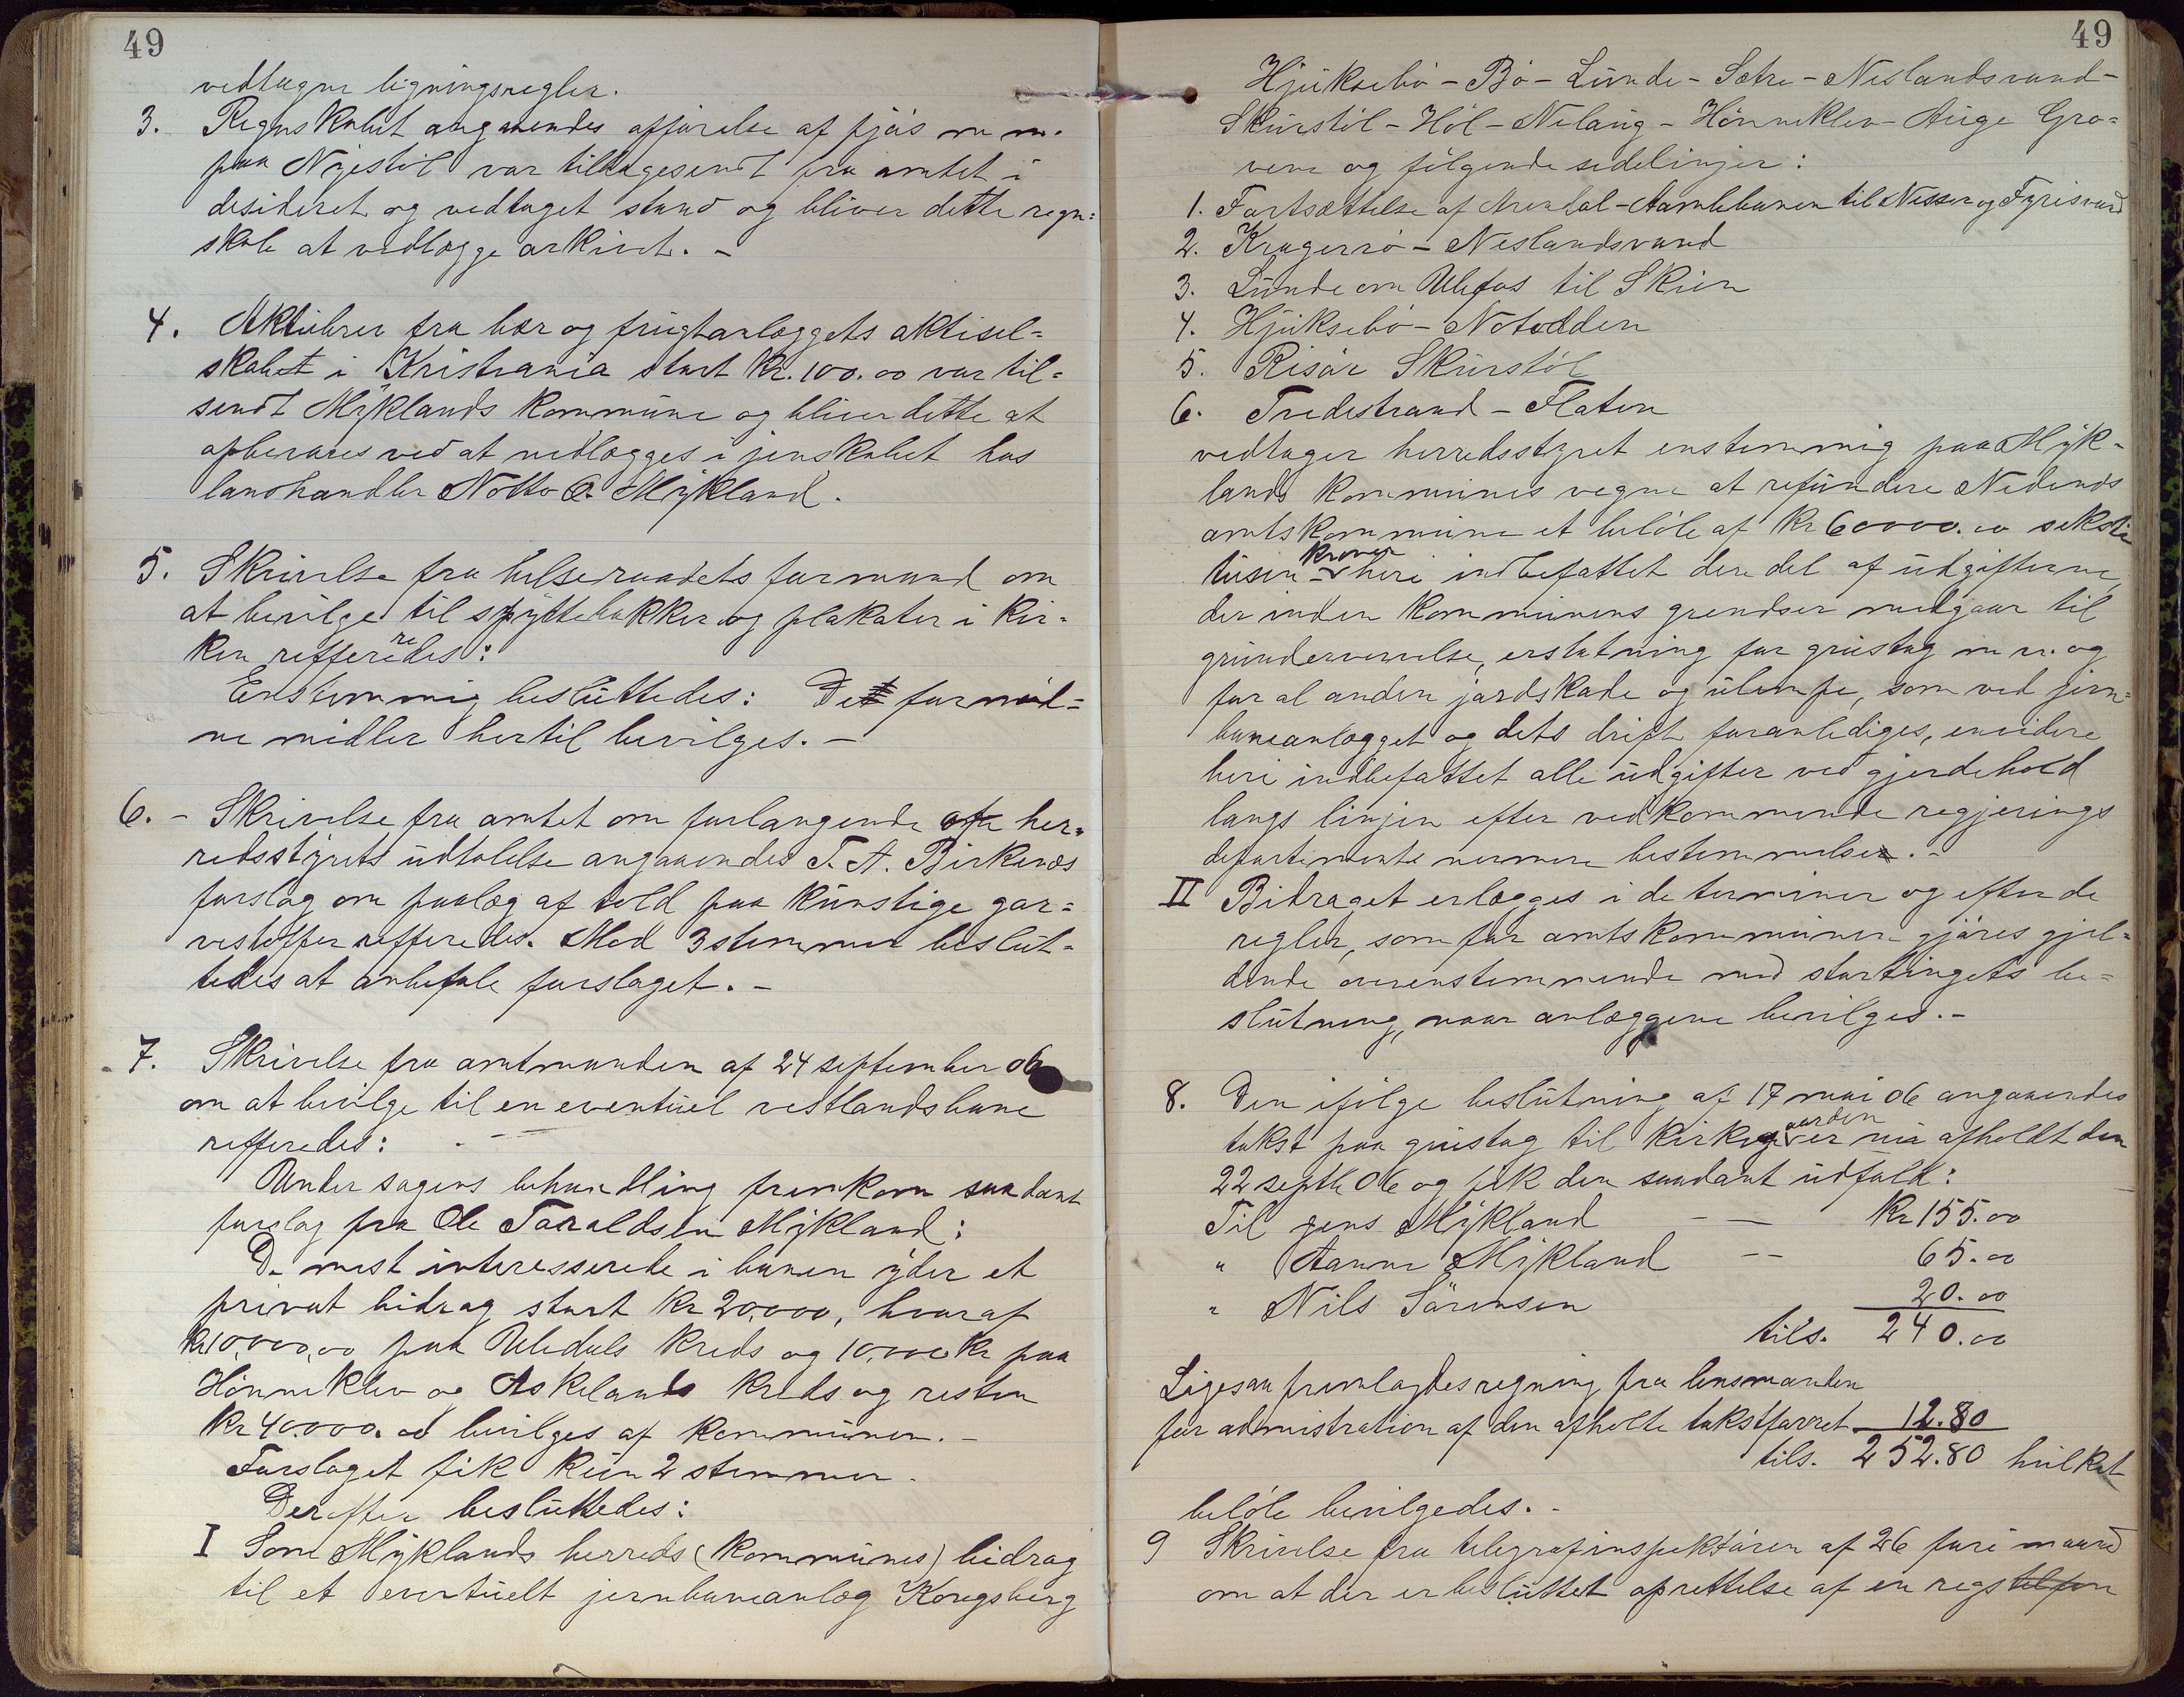 49
vedtagne ligningsregler.
3. Regnskabet angaaende opførelse af fjøs m m.
paa Nyestøl var tilbagesendt fra amtet i
desideret og vedtaget stand og bliver dette regn=
skab at vedlægge arkivet. -
4. Aktiebrev fra bær og frugtanlæggets aktisel=
skabet i Kristiania stort Kr. 100.00 var til=
sendt Myklands kommune og bliver dette at
opbevares ved at nedlægges i jenskabet hos
landhandler Notto O. Mykland.
5. Skrivelse fra helseraadets formand om
at bevilge til spyttebakker og plakater i kir-
ken reffereredes:
Enstemmig besluttedes: De fornød=
ne midler hertil bevilges. -
6. - Skrivelse fra amtet om forlangende her=
redsstyrets udtalelse angaaendes T. A. Birkenæs
forslag om paalæg af told paa kunstige gar=
vestoffer refferedes. Med 3 stemmer beslut=
tedes at anbefale forslaget. -
7. Skrivelse fra amtmanden af 24 september 06
om at bevilge til en eventuel vestlandsbane
refferedes:
Under sagens behandling fremkom saadant
forslag fra Ole Taraldsen Mykland:
De mest interesserede i banen yder et
privat bidrag stort Kr 20.000, hvoraf
Kr 10,000,00 paa Uledals Kreds og 10,000 Kr paa
Hønneklev og Askelands Kreds og resten
Kr 40.000.00 bevilges af kommunen. -
Forslaget fik kun 2 stemmer.
Derefter besluttedes:
I Som Myklands herreds (kommunes) bidrag
til et eventuelt jernbaneanlæg Kongsberg
49
Hjuksebø - Bø - Lunde - Sætre - Neslandsvand -
Skurstøl - Høl - Nelaug - Hønneklev - Auge Gro=
vene og følgende sidelinjer:
1. Fortsættelse af Arendal - Aamlibanen til Nisser og Fyrisvand
2. Kragerø - Neslandsvand
3. Lunde om Ulefos til Skien
4. Hjuksebø - Notodden
5. Risør Skurstøl
6. Tvedestrand - Flaten
vedtager herredsstyret enstemmig paa Myk-
lands kommunes vegne at refundere Nedenes
amtskommune et beløb af Kr 60000.00 seksti
tusen kroner heri indbefattet den del af udgifterne,
der inden kommunens grendser medgaar til
grunderverelse, erstatning for grustag m m. og
for al anden jordskade og ulempe, som ved jern=
baneanlægget og dets drift foranlediges, envidere
heri indbefattet alle udgifter ved gjerdehold
langs linjen efter vedkommende regjerings
departements nermere bestemmelse. -
II Bidraget erlægges i de terminer og efter de
regler, som for amtskommunen gjøres gjel=
dende overenstemmende med stortingets be=
slutning, naar anlæggene bevilges. -
8. Den ifølge beslutning af 17 mai 06 angaaendes
takst paa grustag til kirkegaarden er nu afholdt den
22 septb 06 og fik den saadant udfald:
Til jens Mykland - — Kr 155.00
" Aanne Mykland -- 65.00
" Nils Sørensen 20.00
tils. 240.00
Ligesaa fremlagdes regning fra lensmanden
for admistration af den afholte takstforret. 12.80
tils. 252.80 hvilket
beløb bevilgedes. -
9 Skrivelse fra telegrafinspektøren af 26 fori maaned
om at der er besluttet oprettelse af en regstelefon